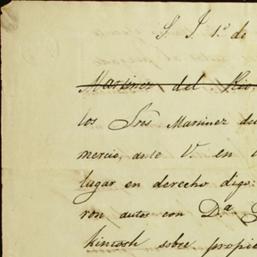 S. J. 1.º de
Martinez del Rio
los Sres Martinez del
mercio, ante V. en
lugar en derecho digo:
ron autos con D.ª
kintosh sobre propie